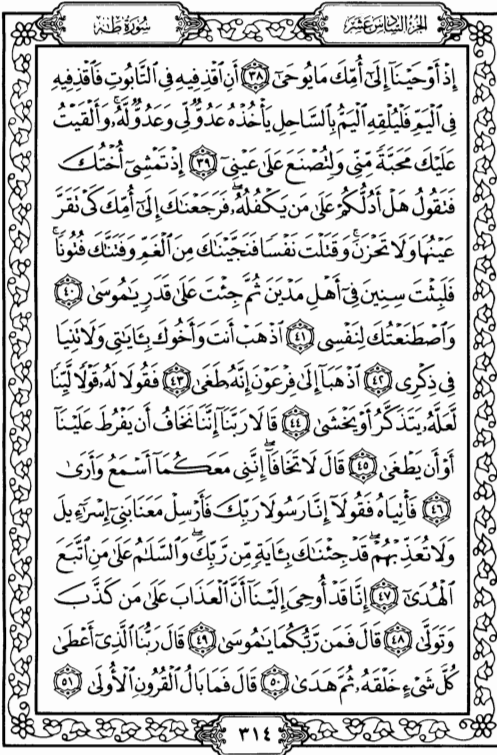 الجُزءُ السَّادِسَ عَشَرَ سُورَةُ طه
إِذۡ أَوۡحَيۡنَآ إِلَىٰٓ أُمِّكَ مَا يُوحَىٰٓ ٣٨ أَنِ ٱقۡذِفِيهِ فِي ٱلتَّابُوتِ فَٱقۡذِفِيهِ
فِي ٱلۡيَمِّ فَلۡيُلۡقِهِ ٱلۡيَمُّ بِٱلسَّاحِلِ يَأۡخُذۡهُ عَدُوّٞ لِّي وَعَدُوّٞ لَّهُۥۚ وَأَلۡقَيۡتُ
عَلَيۡكَ مَحَبَّةٗ مِّنِّي وَلِتُصۡنَعَ عَلَىٰ عَيۡنِيٓ ٣٩ إِذۡ تَمۡشِيٓ أُخۡتُكَ
فَتَقُولُ هَلۡ أَدُلُّكُمۡ عَلَىٰ مَن يَكۡفُلُهُۥۖ فَرَجَعۡنَٰكَ إِلَىٰٓ أُمِّكَ كَيۡ تَقَرَّ
عَيۡنُهَا وَلَا تَحۡزَنَۚ وَقَتَلۡتَ نَفۡسٗا فَنَجَّيۡنَٰكَ مِنَ ٱلۡغَمِّ وَفَتَنَّٰكَ فُتُونٗاۚ
فَلَبِثۡتَ سِنِينَ فِيٓ أَهۡلِ مَدۡيَنَ ثُمَّ جِئۡتَ عَلَىٰ قَدَرٖ يَٰمُوسَىٰ ٤٠
وَٱصۡطَنَعۡتُكَ لِنَفۡسِي ٤١ ٱذۡهَبۡ أَنتَ وَأَخُوكَ بِـَٔايَٰتِي وَلَا تَنِيَا
فِي ذِكۡرِي ٤٢ ٱذۡهَبَآ إِلَىٰ فِرۡعَوۡنَ إِنَّهُۥ طَغَىٰ ٤٣ فَقُولَا لَهُۥ قَوۡلٗا لَّيِّنٗا
لَّعَلَّهُۥ يَتَذَكَّرُ أَوۡ يَخۡشَىٰ ٤٤ قَالَا رَبَّنَآ إِنَّنَا نَخَافُ أَن يَفۡرُطَ عَلَيۡنَآ
أَوۡ أَن يَطۡغَىٰ ٤٥ قَالَ لَا تَخَافَآۖ إِنَّنِي مَعَكُمَآ أَسۡمَعُ وَأَرَىٰ
٤٦ فَأۡتِيَاهُ فَقُولَآ إِنَّا رَسُولَا رَبِّكَ فَأَرۡسِلۡ مَعَنَا بَنِيٓ إِسۡرَٰٓءِيلَ
وَلَا تُعَذِّبۡهُمۡۖ قَدۡ جِئۡنَٰكَ بِـَٔايَةٖ مِّن رَّبِّكَۖ وَٱلسَّلَٰمُ عَلَىٰ مَنِ ٱتَّبَعَ
ٱلۡهُدَىٰٓ ٤٧ إِنَّا قَدۡ أُوحِيَ إِلَيۡنَآ أَنَّ ٱلۡعَذَابَ عَلَىٰ مَن كَذَّبَ
وَتَوَلَّىٰ ٤٨ قَالَ فَمَن رَّبُّكُمَا يَٰمُوسَىٰ ٤٩ قَالَ رَبُّنَا ٱلَّذِيٓ أَعۡطَىٰ
كُلَّ شَيۡءٍ خَلۡقَهُۥ ثُمَّ هَدَىٰ ٥٠ قَالَ فَمَا بَالُ ٱلۡقُرُونِ ٱلۡأُولَىٰ ٥١
٣١٤